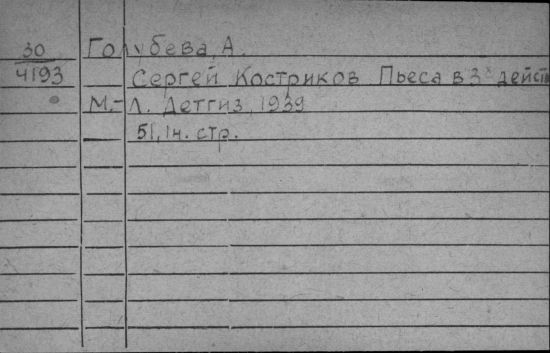 30 Голубева, А.
4193 Сергей Костриков Пьеса в 3х действ
М.-Л. Детгиз, 1939
51, 1н. стр.